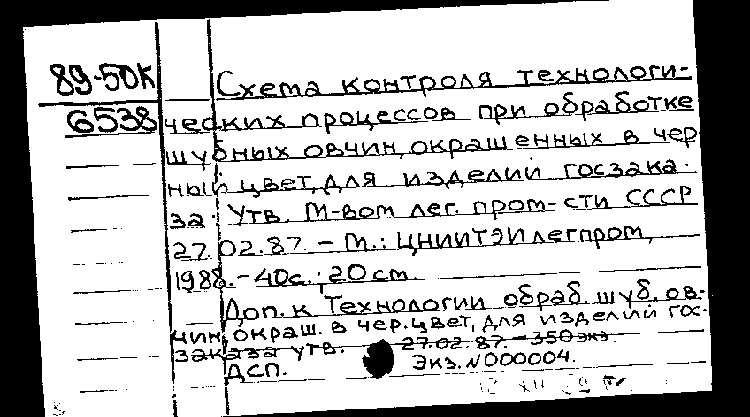 89-50К
6538
Схема контроля технологи-
ческих процессов при обработке
шубных овчин, окрашенных в чер
ный цвет, для изделий госзака-
за. Утв. М-вом лег. пром-сти СССР
27.02.87. - М.: ЦНИИТЭИлегпром,
1988. - 40с.; 20 см.
Доп. к Технологии обраб. шуб. ов-
чин, окраш. в чер. цвет, для изделий гос-
заказа утв. 27.02.87. - 350 экз.
ДСП. Экз. N000004.